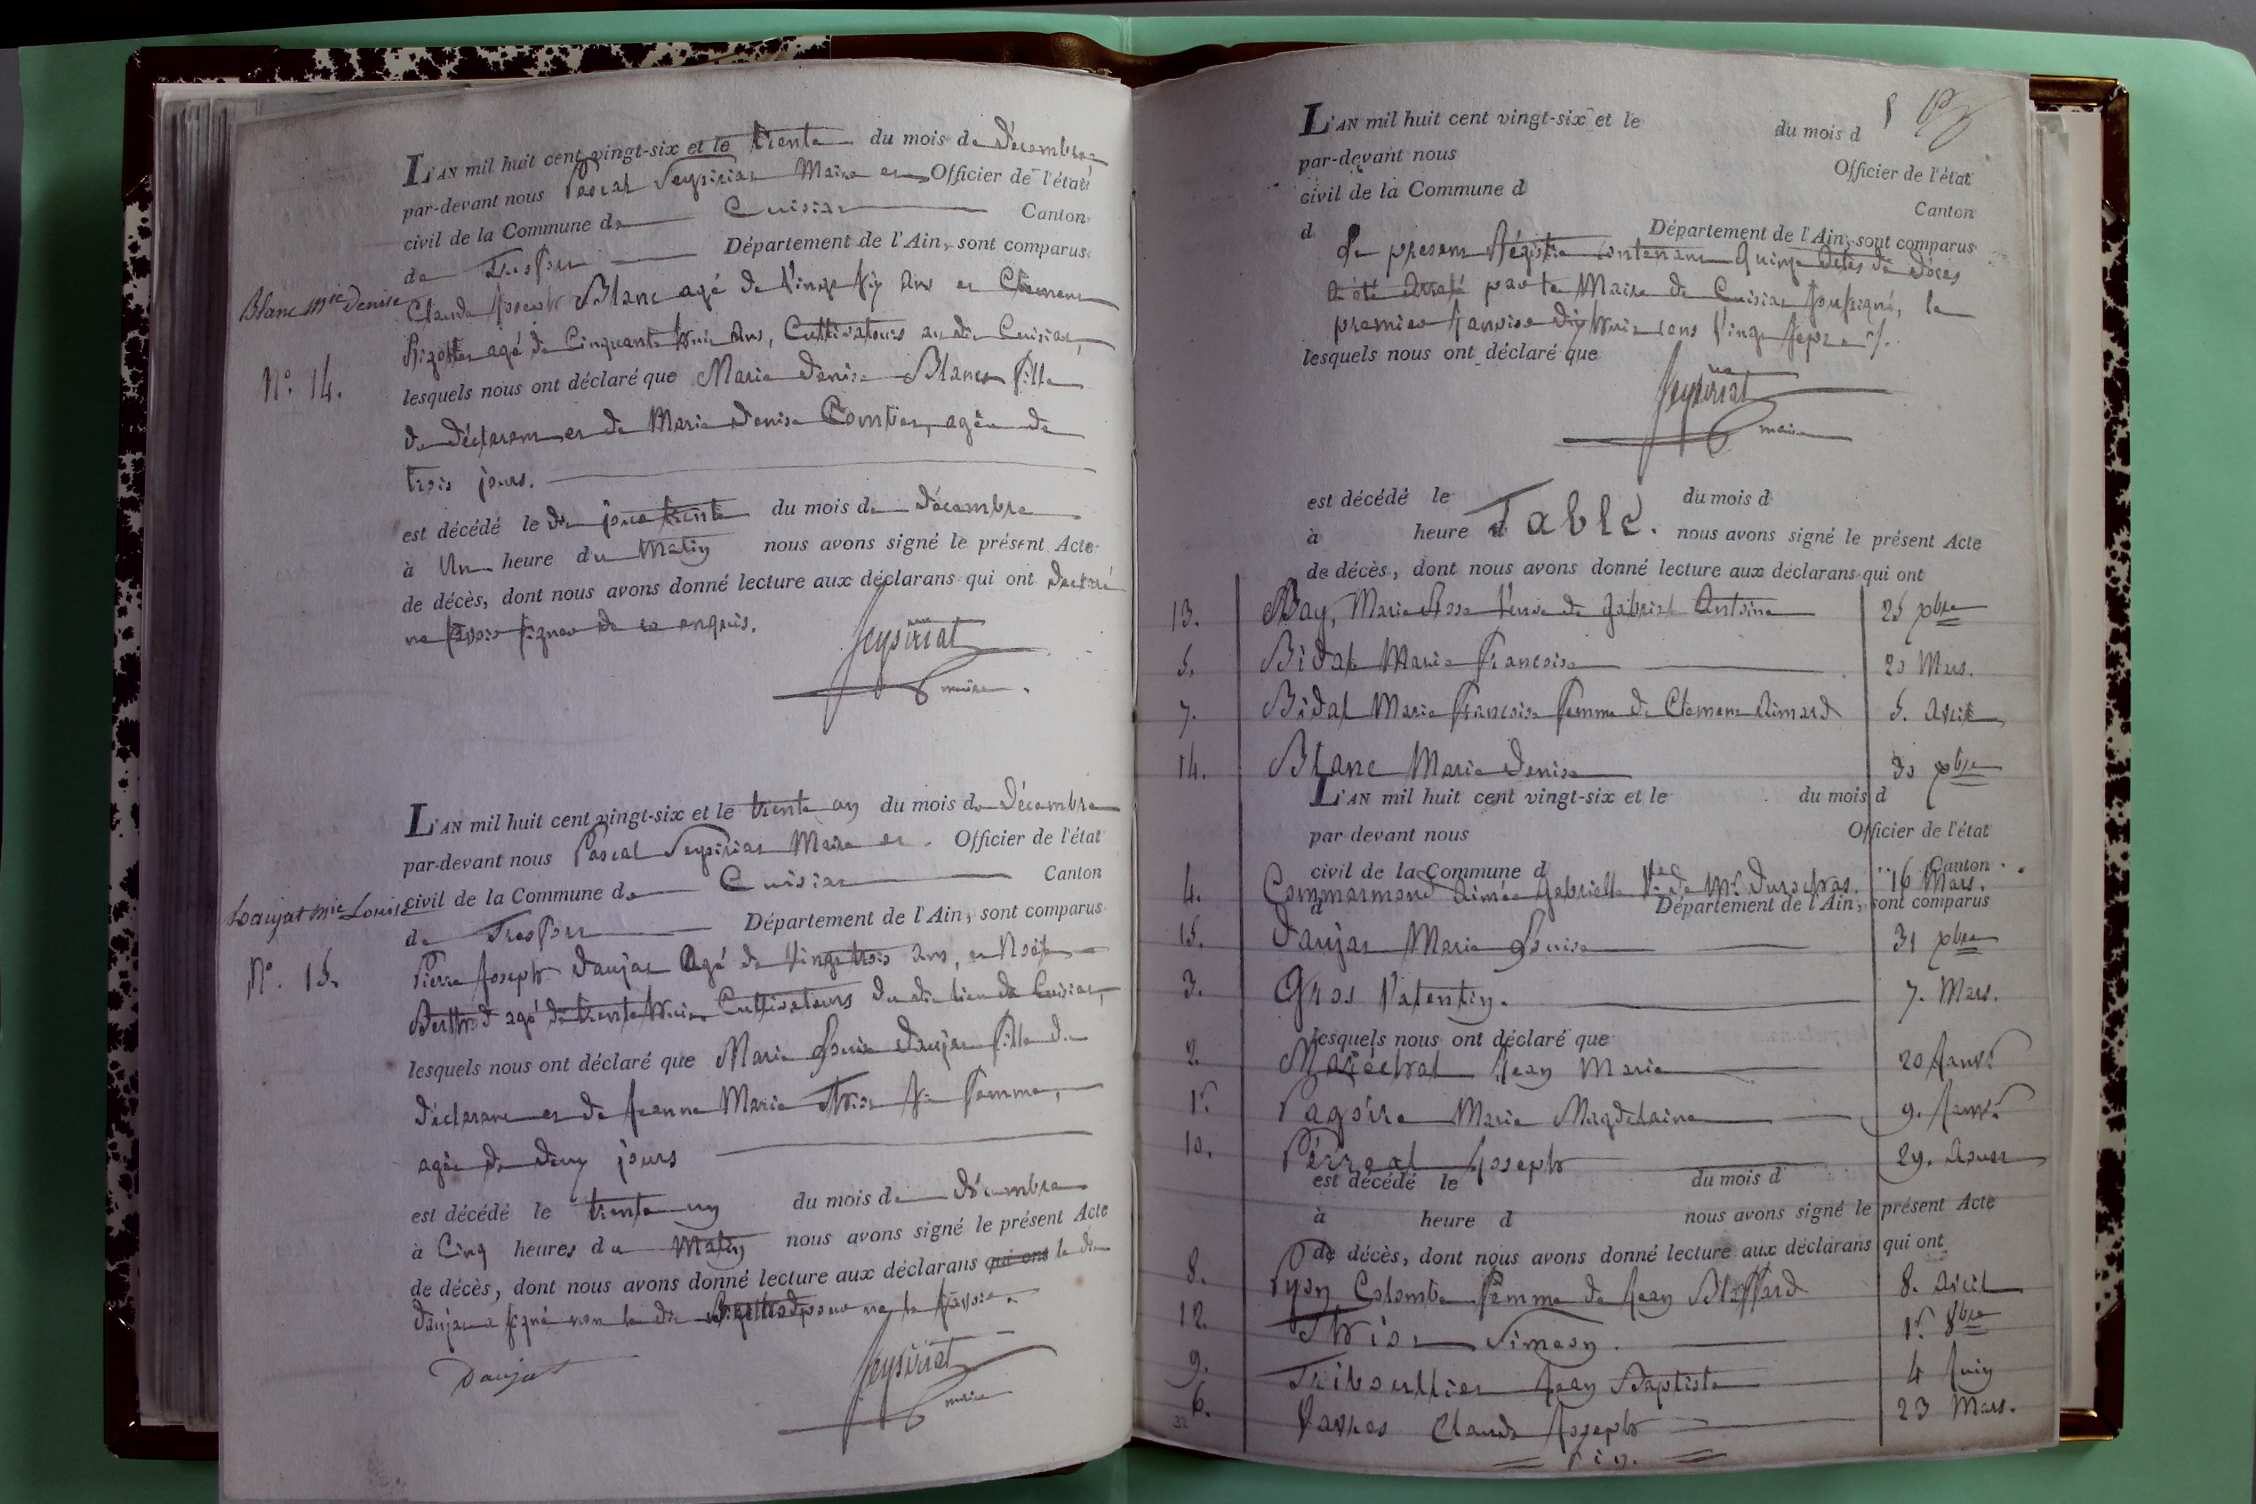 L'AN mil huit cent vingt-six et le trente du mois de Décembre
par-devant nous Pascal Seysiriat Maire et Officier de l'état
civil de la Commune de Cuisiat Canton
de Treffort Département de l'Ain, sont comparus
Blanc Mie Denise
Claude Joseph Blanc agé de Vingt six ans et Clement
agé de Cinquante huit ans, Cultivateurs au dit Cuisiat,
N.o 14.
lesquels nous ont déclaré que Marie Denise Blanc fille
du déclarant et de Marie Denise Comtet, agée de
trois jours.
est décédé le du jour trente du mois de Décembre
à Un heure du Matin nous avons signé le présent Acte
de décès, dont nous avons donné lecture aux déclarans qui ont declaré
ne savoir signer de ce enquis.
Seysiriat
maire.
L'AN mil huit cent vingt-six et le trente un du mois de Décembre
par-devant nous Pascal Seysiriat Maire et Officier de l'état
civil de la Commune de Cuisiat Canton
Daujat Mie Louise
de Treffort Département de l'Ain, sont comparus
Pierre Joseph Daujat Agé de Vingt trois ans, et Noël
N.o 15.
Berthod agé de trente huit Cultivateurs du dit lieu de Cuisiat,
lesquels nous ont déclaré que Marie Louise Daujat fille du
déclarant et de Jeanne Marie sa femme,
agée de deux jours
est décédé le trente un du mois de Décembre
à Cinq heures du Matin nous avons signé le présent Acte
de décès, dont nous avons donné lecture aux déclarans qui ont le dit
Daujat a signé non le dit pour ne le savoir.
Daujat
Seysiriat
maire
L'AN mil huit cent vingt-six et le du mois d
par-devant nous Officier de l'état
civil de la Commune d Canton
d Département de l'Ain, sont comparus
Le present Régistre contenant Quinze Actes de Décès
a été arreté par le Maire de Cuisiat soussigné, le
premier Janvier dix huit cent Vingt sept
lesquels nous ont déclaré que
Seysiriat
maire
est décédé le du mois d
à heure d Table. nous avons signé le présent Acte
de décès, dont nous avons donné lecture aux déclarans qui ont
13. Bay, Marie Rose Veuve de Gabriel Antoine 25 xbre
5. Bidal Marie Francoise 20 Mars.
7. Bidal Marie Francoise femme de Clement Aimard 5. Avril
14. Blanc Marie Denise 30 xbre
L'AN mil huit cent vingt-six et le du mois d
par-devant nous Officier de l'état
civil de la Commune d Canton
4. Commarmond Aimée Gabrielle Ve de Mr. 16 Mars.
d Département de l'Ain, sont comparus
15. Daujat Marie Louise 31 xbre
3. Gros Valentin. 7. Mars.
lesquels nous ont déclaré que
2. Maréchal Jean Marie 20 Janvr
1r. Pagoire Marie Magdelaine 9. Janvr
10. Perreal Joseph 29. Aout
est décédé le du mois d
à heure d nous avons signé le présent Acte
de décès, dont nous avons donné lecture aux déclarans qui ont
8. Colombe femme de Jean 8. Avril
12. Simeon. 1r. 8bre
9. Triboullier Jean Baptiste 4 Juin
6. Claude Joseph 23 Mars.
Fin.